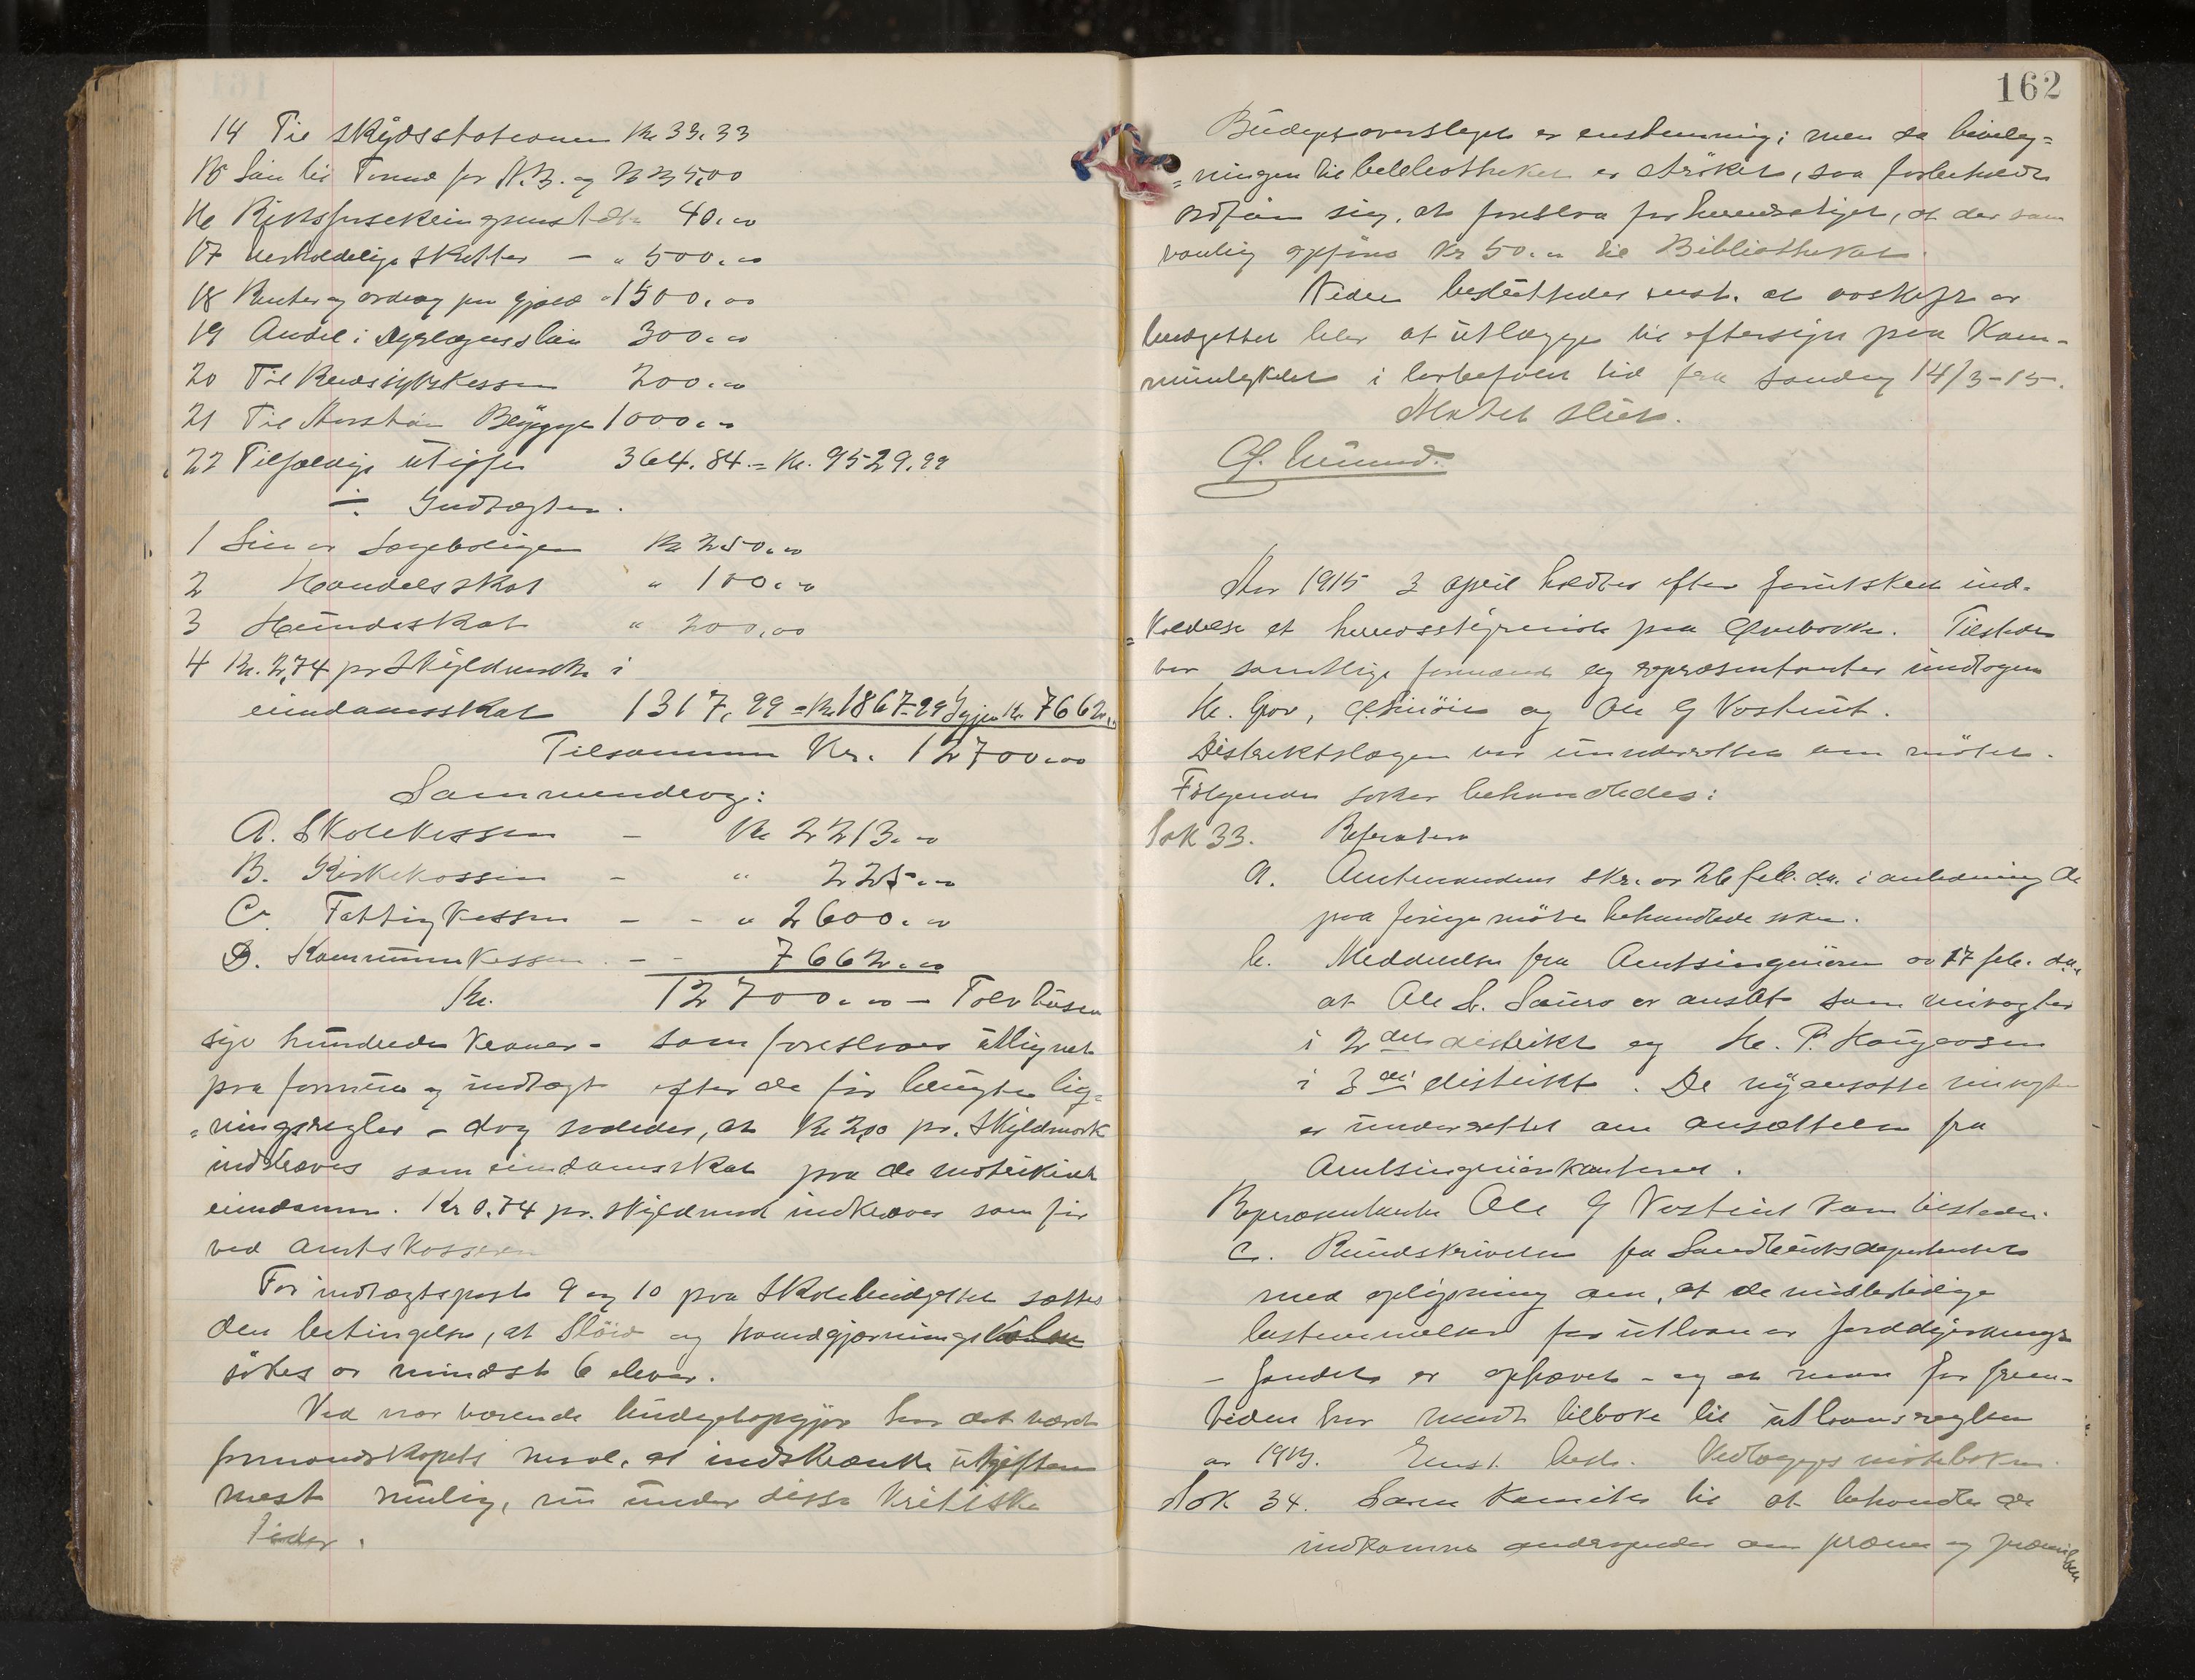 14 Til skydsstationen Kr 33,33
15 Løn til Formd for N.B. og 335,00
16 Riksforsikringsanstalten 40,00
17 Uerholdelige skatter - " 500,00
18 Renter og avdrag paa gjæld " 1500,00
19 Andel i Dyrlægens løn 300,00
20 Til Kredssykekassen 200,00
21 Til Bygge 1000,00
22 Tilfældige utgifter 364,84 = Kr. 9529,99
÷ Indtægter.
1 Leie av Lægeboligen Kr 250,00
2 Handelsskat " 100,00
3 Hundeskat " 200,00
4 Kr. 2,74 pr Skyldmark i
eiendomsskat 1317,99 = Kr 1867,99 Igjen Kr. 7662,00
Tilsammen Kr. 12700,00
Sammendrag:
A. Skolekassen - Kr 2213,00
B. Kirkekassen - " 225,00
C. Fattigkassen - - " 2600,00
D. Kommunekassen - - 7662,00
Kr. 12700,00 - Tolv tusen
syv hundrede kroner - som foreslaaes utlignet
paa formue og indtægt efter de før brugte lig=
=ningsregler - dog saaledes, at Kr 2,00 pr. Skyldmark
indkræves som eiendomsskat paa de matrikulerte
eiendomme. Kr 0,74 pr. skyldmark indkræves som før
ved amtskassen
For indtægtspost 9 og 10 paa Skolebudgettet sættes
den betingelse, at Sløid og haandgjerningsskolen
søkes av mindst 6 elever.
Ved nærværende budgetopgjør har det været
formandskapets maal, at indskrænke utgiften
mest mulig, nu under disse kritiske
tider.
162
Budgetoverslaget er enstemmig; men da bevilg=
=ningen til bibliotheket er strøket, saa forbeholdt
ordføreren sig, at foreslaa for herredsstyret, at der som
vanlig opføres Kr 50,00 til Bibliotheket.
Videre besluttedes enst. at avskrift av
budgettet blev at utlægge til eftersyn paa Kom-
munelokalet i lovbefalet tid fra søndag 14/3-15.
Møtet slut.
Aar 1915 3 april holdtes efter forutskedd ind=
=kaldelse et herredsstyremøte paa Kvebakke. Tilstede
var samtlige formænd og repræsentanter undtagen
H. Grov, og Ole G Vostrüt.
Distriktslægen var underrettet om møtet.
Følgende saker behandledes:
Sak 33. Referater
a. Amtmandens skr. av 26 feb. d.a. i anledning de
paa forrige møte behandlede saker.
b. Meddelelse fra Amtsingeniøren av 17 feb. d.a.
at Ole L. Sauro er ansat som veivogter
i 2det distrikt og H. P. Haugeaasen
i 3die distrikt. De nyansatte veivogter
er underrettet om ansættelsen fra
Amtsingeniørkontoret.
Repræsentanten Ole G Vostrüt kom tilstede.
c. Rundskrivelse fra Landbruksdepartementet
med oplysning om, at de midlertidige
bestemmelser for utlaan av jorddyrknings
- fondet er ophævet - og at man for frem-
tiden har vendt tilbake til utlaansreglene
av 1913. Enst. besl. Vedlægges møteboken.
Sak 34. Lønnskomite til at behandle de
indkomne andragender om præmie og præmielaan